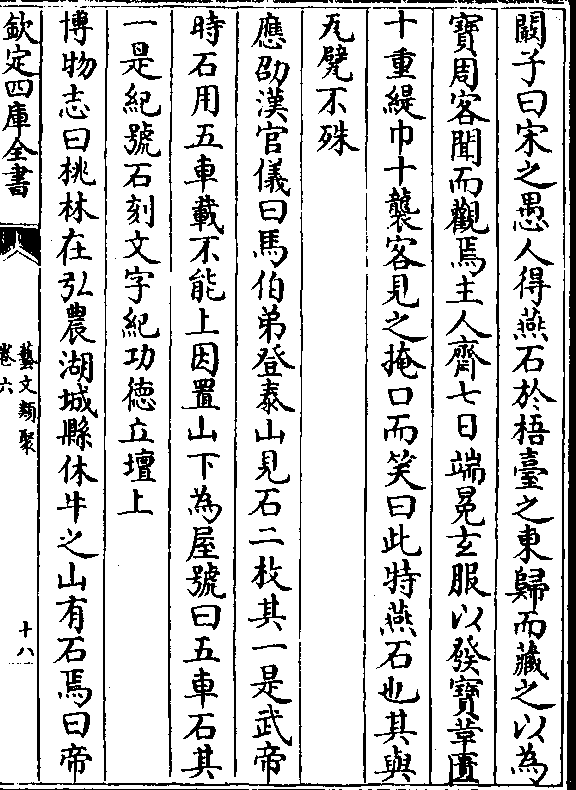 闞子曰宋之愚人得燕石於梧臺之東歸而藏之以為
寶周客聞而觀焉主人齊七日端冕玄服以發寶革匱
十重緹巾十襲客見之掩口而笑曰此特燕石也其與
瓦甓不殊
應劭漢官儀曰馬伯弟登泰山見石二枚其一是武帝
時石用五車載不能上因置山下為屋號曰五車石其
一是紀號石刻文字紀功德立壇上
博物志曰桃林在弘農湖城縣休牛之山有石焉曰帝
欽定四庫全書
藝文類聚
卷六
十八